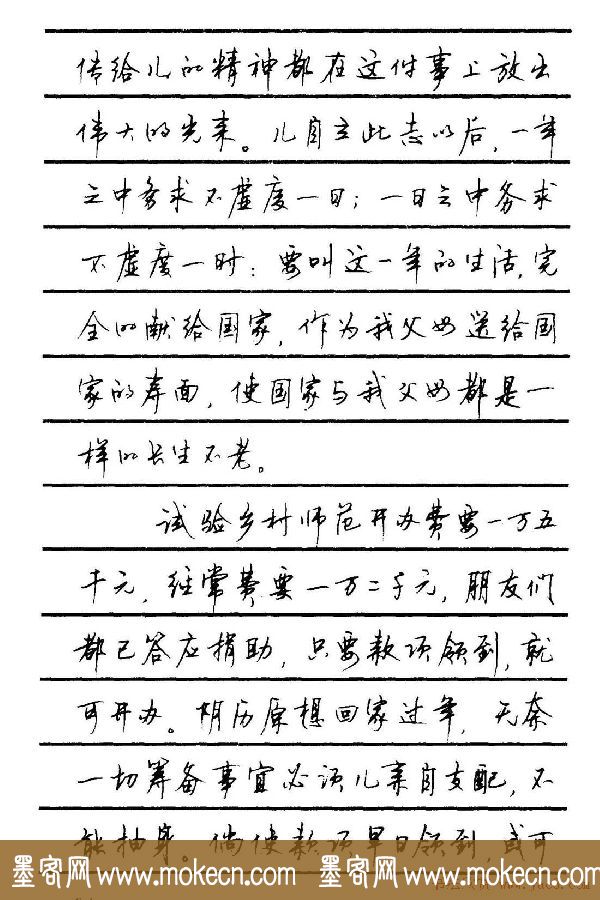 传给儿的精神都在这件事上放出
伟大的光来。儿自立此志以后，一年
之中务求不虚度一日；一日之中务求
不虚度一时；要叫这一年的生活，完
全的献给国家，作为我父母送给国
家的寿面，使国家与我父母都是一
样的长生不老。
试验乡村师范开办费要一万五
千元，经常费要一万二千元，朋友们
都已答应捐助，只要款项领到，就
可开办。阴历原想回家过年，无奈
一切筹备事宜必须儿亲自支配，不
能抽身。倘使款项早日领到，或可
墨客网 www.mokecn.com 墨客网 www.mokecn.com